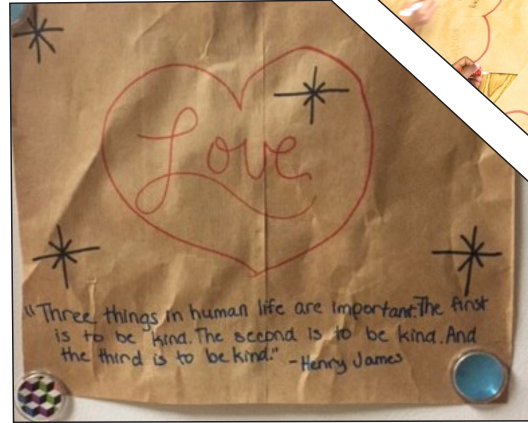 Love
"Three things in human life are important. The first
is to be kind. The second is to be kind. And
the third is to be kind." - Henry James